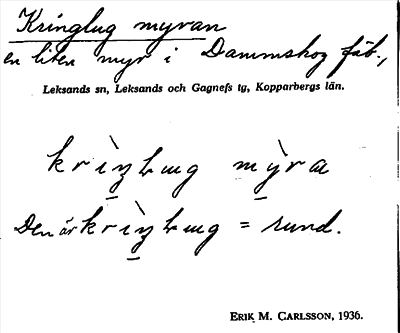 Kringlug myran
en liten myr i Dammskog fäb.,
Leksands sn, Leksands och Gagnefs tg, Kopparbergs län.
krìŋ̠ɫug mỳ̠ra
Den är krìŋ̠ɫug = rund.
ERIK M. CARLSSON, 1936.